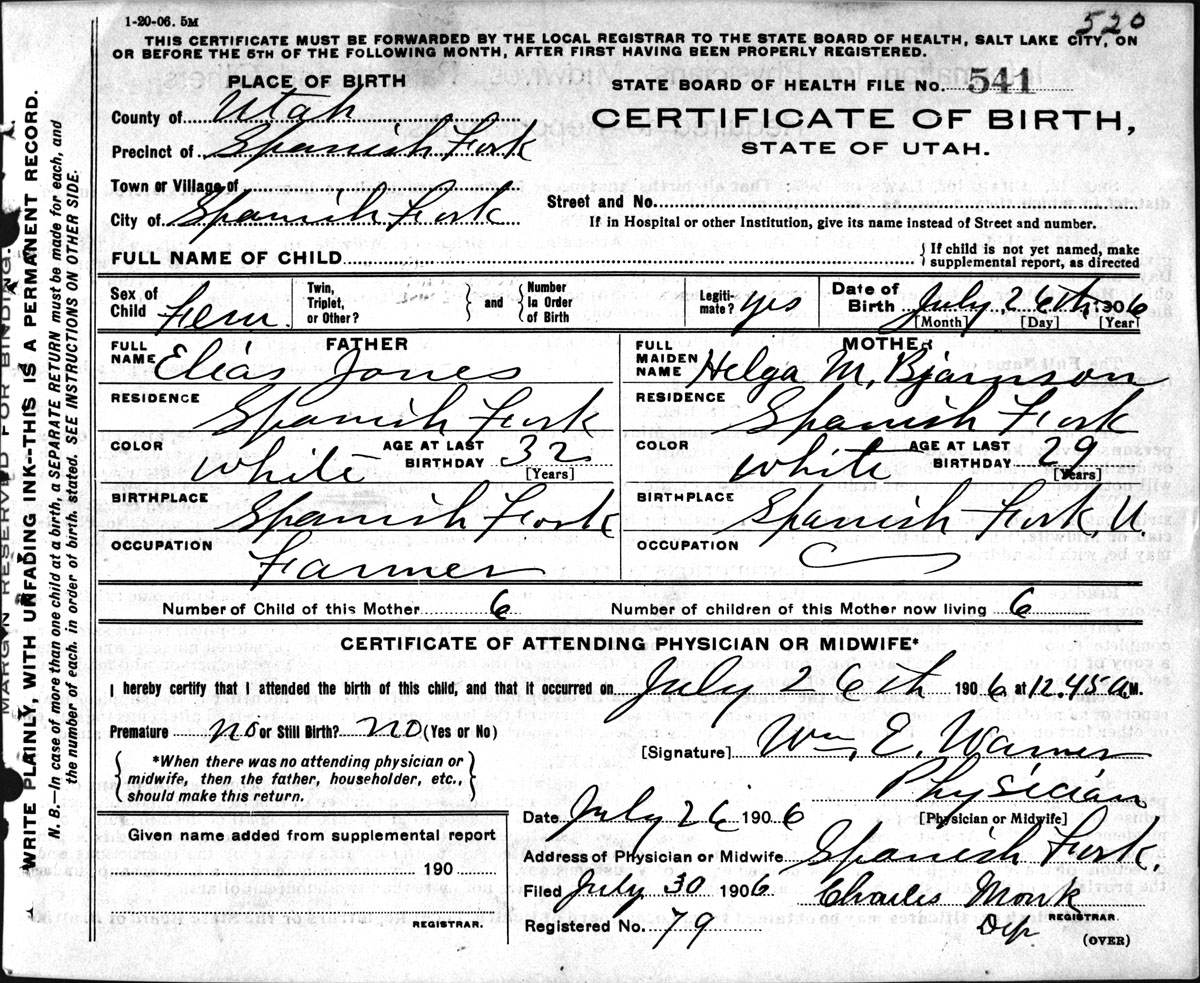 1-20-06. 5M
520
THIS CERTIFICATE MUST BE FORWARDED BY THE LOCAL REGISTRAR TO THE STATE BOARD OF HEALTH, SALT LAKE CITY, ON
OR BEFORE THE 5TH OF THE FOLLOWING MONTH, AFTER FIRST HAVING BEEN PROPERLY REGISTERED.
PLACE OF BIRTH
County of Utah
Precinct of Spanish Fork
Town or Village of
City of Spanish Fork
STATE BOARD OF HEALTH FILE No. 541
CERTIFICATE OF BIRTH,
STATE OF UTAH.
Street and No.
If in Hospital or other Institution, give its name instead of Street and number.
FULL NAME OF CHILD
{ If child is not yet named, make
supplemental report, as directed
Sex of
Child Fem.
Twin,
Triplet,
or Other?
} and {
Number
in Order
of Birth
Legiti-
mate? yes
Date of
Birth July, 26th, 1906
[Month] [Day] [Year]
FATHER
FULL
NAME Elias Jones
RESIDENCE
Spanish Fork
COLOR White
AGE AT LAST
BIRTHDAY 32
[Years]
BIRTHPLACE
Spanish Fork
OCCUPATION
Farmer
MOTHER
FULL
MAIDEN
NAME Helga M. Bjarnson
RESIDENCE
Spanish Fork
COLOR White
AGE AT LAST
BIRTHDAY 29
[Years]
BIRTHPLACE
Spanish Fork U
OCCUPATION
Number of Child of this Mother 6
Number of children of this Mother now living 6
CERTIFICATE OF ATTENDING PHYSICIAN OR MIDWIFE*
I hereby certify that I attended the birth of this child, and that it occurred on July 26th 1906 at 12.45 a M.
Premature no or Still Birth? no (Yes or No)
{ *When there was no attending physician or
midwife, then the father, householder, etc.,
should make this return. }
[Signature] Wm. E. Warner
Physician
[Physician or Midwife]
Date July 26 1906
Address of Physician or Midwife Spanish Fork.
Filed July 30 1906
Charles Monk
Dep REGISTRAR.
Registered No. 79
(OVER)
Given name added from supplemental report
190
REGISTRAR.
MARGIN RESERVED FOR BINDING.
WRITE PLAINLY, WITH UNFADING INK--THIS IS A PERMANENT RECORD.
N. B.—In case of more than one child at a birth, a SEPARATE RETURN must be made for each, and
the number of each, in order of birth, stated. SEE INSTRUCTIONS ON OTHER SIDE.